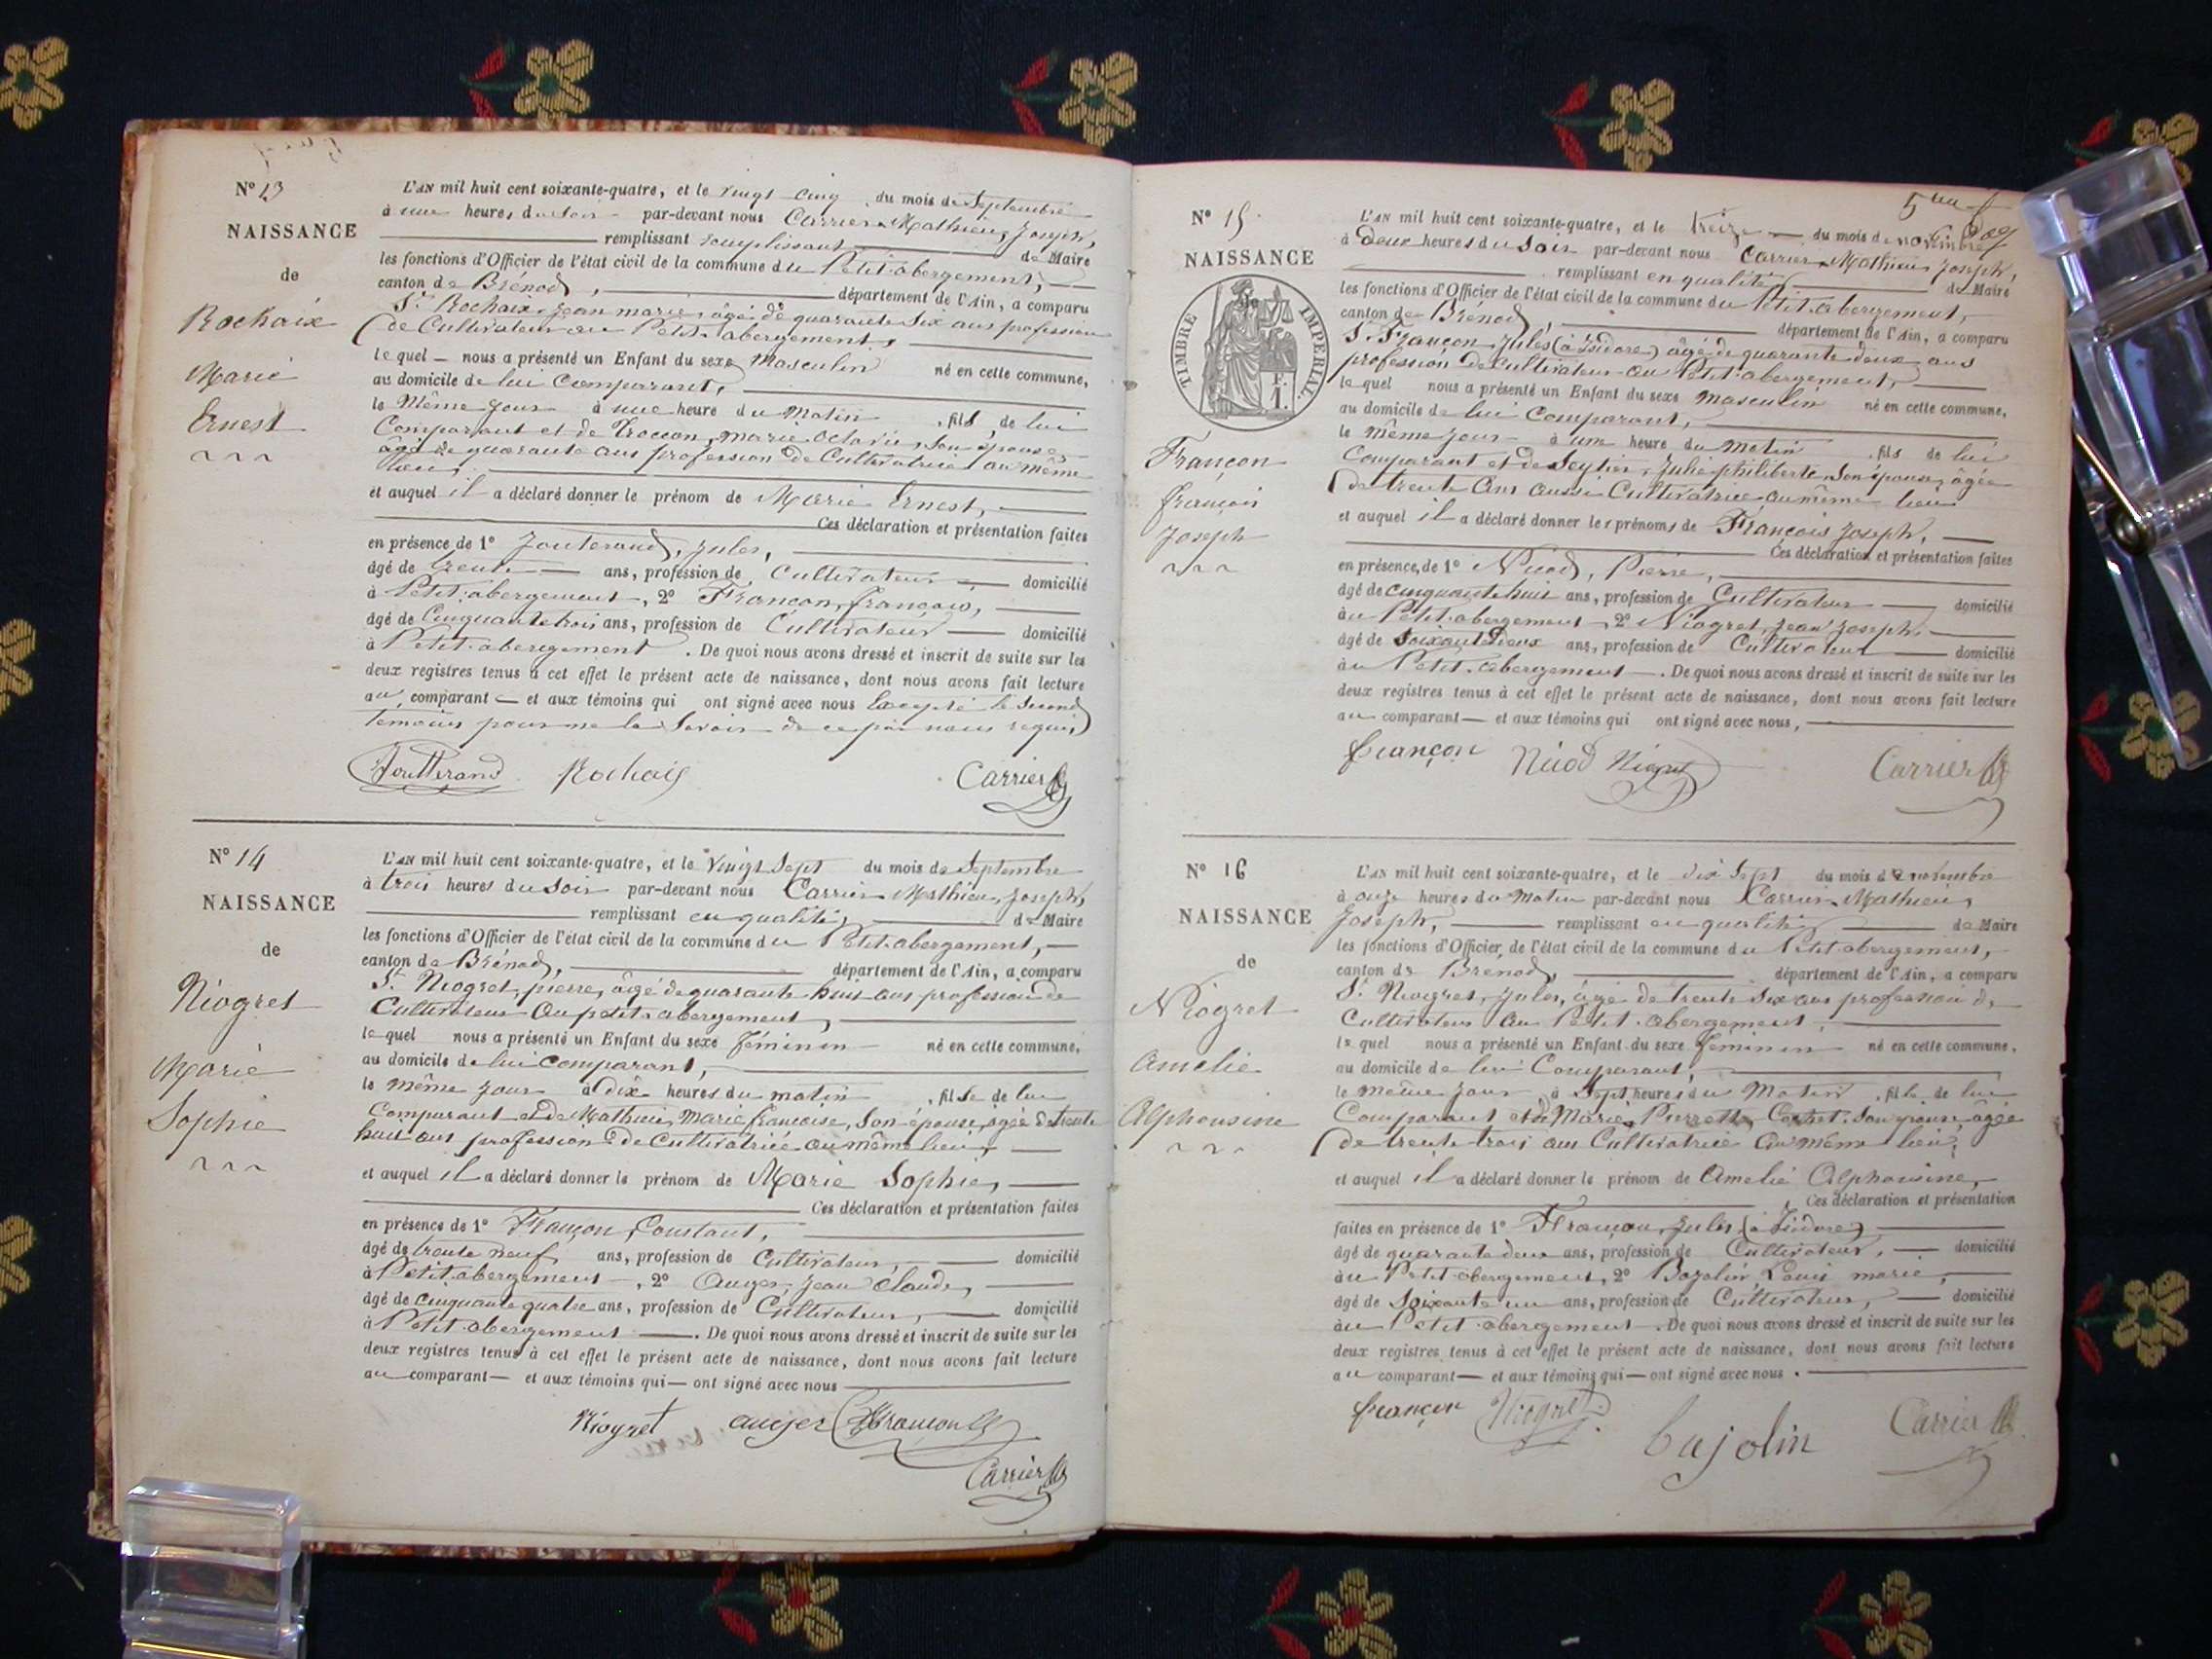 N° 13
NAISSANCE
de
Rochaix
Marie
Ernest
L'AN mil huit cent soixante-quatre, et le vingt cinq du mois de Septembre
à une heures du soir par-devant nous Carrier Mathieu, Joseph,
remplissant remplissant de Maire
les fonctions d'Officier de l'état civil de la commune du Petit-abergement,
canton de Brénod, département de l'Ain, a comparu
Sr. Rochaix, Jean marie, âgé de quarante Six ans profession
de Cultivateur au Petit abergement,
lequel nous a présenté un Enfant du sexe Masculin né en cette commune,
au domicile de lui Comparant,
le Même jour à une heure du Matin, fils de lui
Comparant et de Troccon, marie Octavie, Son épouse,
âgé de quarante ans profession de Cultivatrice au même
lieu,
et auquel il a déclaré donner le prénom de Marie Ernest,
Ces déclaration et présentation faites
en présence de 1° Jouterand, Jules,
âgé de trente ans, profession de Cultivateur domicilié
à Petit-abergement, 2° Françon, françois,
âgé de Cinquante trois ans, profession de Cultivateur domicilié
à Petit abergement. De quoi nous avons dressé et inscrit de suite sur les
deux registres tenus à cet effet le présent acte de naissance, dont nous avons fait lecture
au comparant et aux témoins qui ont signé avec nous Excepté le Second
temoins pour ne le Savoir de ce par nous requis
Joutterand Rochaix Carrier
N° 14
NAISSANCE
de
Niogret
Marie
Sophie
L'AN mil huit cent soixante-quatre, et le Vingt Sept du mois de Septembre
à trois heures du Soir par-devant nous Carrier Mathieu, Joseph,
remplissant en qualité, de Maire
les fonctions d'Officier de l'état civil de la commune du Petit-abergement,
canton de Brénod, département de l'Ain, a comparu
Sr. Niogret, pierre, âgé de quarante huit ans profession de
Cultivateur au petit abergement,
lequel nous a présenté un Enfant du sexe féminin né en cette commune,
au domicile de lui comparant,
le même jour à Dix heures du matin, fille de lui
Comparant et de Mathieu, Marie françoise, Son épouse, âgée de trente
huit ans profession de Cultivatrice au même lieu,
et auquel il a déclaré donner le prénom de Marie Sophie,
Ces déclaration et présentation faites
en présence de 1° Françon, Constant,
âgé de trente neuf ans, profession de Cultivateur, domicilié
à Petit abergement, 2° Auger, Jean Claude,
âgé de cinquante quatre ans, profession de Cultivateur, domicilié
à Petit-abergement. De quoi nous avons dressé et inscrit de suite sur les
deux registres tenus à cet effet le présent acte de naissance, dont nous avons fait lecture
au comparant et aux témoins qui ont signé avec nous
Niogret auger françon
Carrier
N° 15
NAISSANCE
TIMBRE IMPERIAL
F.
1.
Françon
françois
Joseph
L'AN mil huit cent soixante-quatre, et le treize du mois de novembre
à deux heures du Soir par-devant nous Carrier Mathieu Joseph,
remplissant en qualité, de Maire
les fonctions d'Officier de l'état civil de la commune du Petit-abergement,
canton de Brénod département de l'Ain, a comparu
Sr. Françon, Jules (à Isidore) âgé de quarante deux ans
profession de Cultivateur au Petit abergement,
lequel nous a présenté un Enfant du sexe masculin né en cette commune,
au domicile de lui comparant,
le même jour à une heure du matin, fils de lui
Comparant et de Seytier, Julie philiberte, Son épouse, âgée
de trente ans aussi Cultivatrice au même lieu
et auquel il a déclaré donner les prénoms de François Joseph,
Ces déclaration et présentation faites
en présence de 1° Nicod, Pierre,
âgé de cinquante huit ans, profession de Cultivateur domicilié
au Petit abergement, 2° Niogret, Jean Joseph,
âgé de Soixante Deux ans, profession de Cultivateur domicilié
au Petit abergement. De quoi nous avons dressé et inscrit de suite sur les
deux registres tenus à cet effet le présent acte de naissance, dont nous avons fait lecture
au comparant et aux témoins qui ont signé avec nous,
françon Nicod Niogret Carrier
N° 16
NAISSANCE
de
Niogret
Amelie
Alphonsine
L'AN mil huit cent soixante-quatre, et le dix Sept du mois de novembre
à onze heures du Matin par-devant nous Carrier Mathieu,
Joseph, remplissant en qualité de Maire
les fonctions d'Officier de l'état civil de la commune du Petit-abergement,
canton de Brénod, département de l'Ain, a comparu
Sr. Niogret, Jules, âgé de trente Six ans profession de
Cultivateur au Petit abergement,
lequel nous a présenté un Enfant du sexe féminin né en cette commune,
au domicile de lui Comparant,
le même jour, à Sept heures du Matin, fille de lui
Comparant et de Marie, Pierrette, Son épouse âgée
de trente trois ans Cultivatrice au même lieu,
et auquel il a déclaré donner le prénom de Amelie Alphonsine,
Ces déclaration et présentation
faites en présence de 1° Françon, Jules (à Isidore)
âgé de quarante deux ans, profession de Cultivateur, domicilié
au Petit abergement, 2° Bajolin, Louis marie,
âgé de Soixante un ans, profession de Cultivateur, domicilié
au Petit abergement. De quoi nous avons dressé et inscrit de suite sur les
deux registres tenus à cet effet le présent acte de naissance, dont nous avons fait lecture
au comparant et aux témoins qui ont signé avec nous.
françon Niogret bajolin Carrier